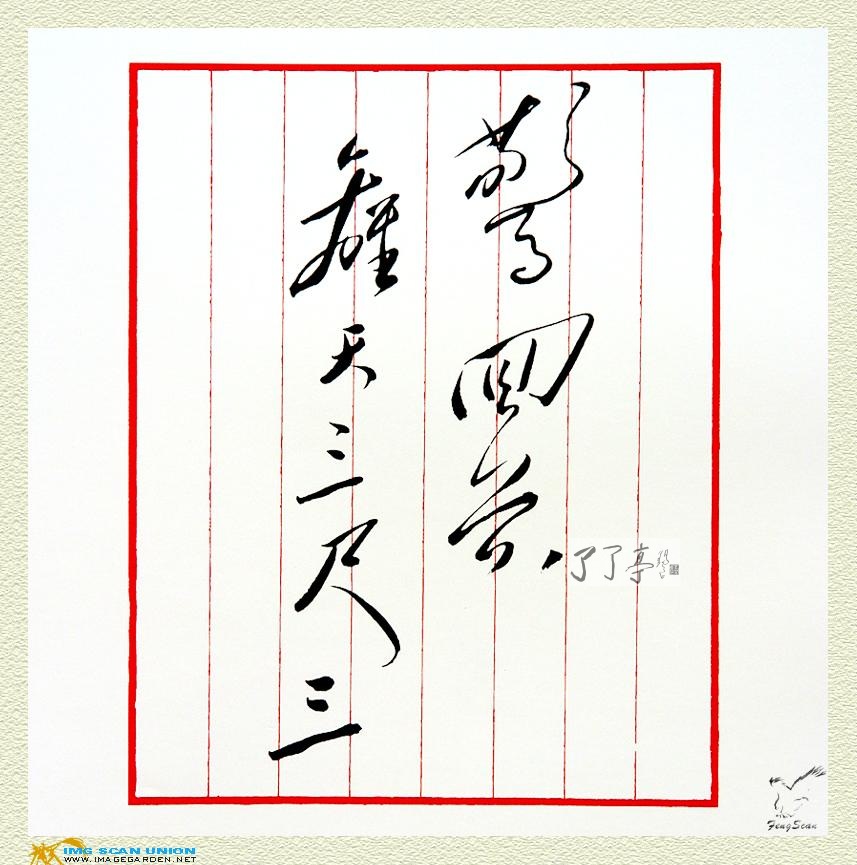 驚回首,
離天三尺三
了了亭
FengScan
IMG SCAN UNION
WWW.IMAGEGARDEN.NET